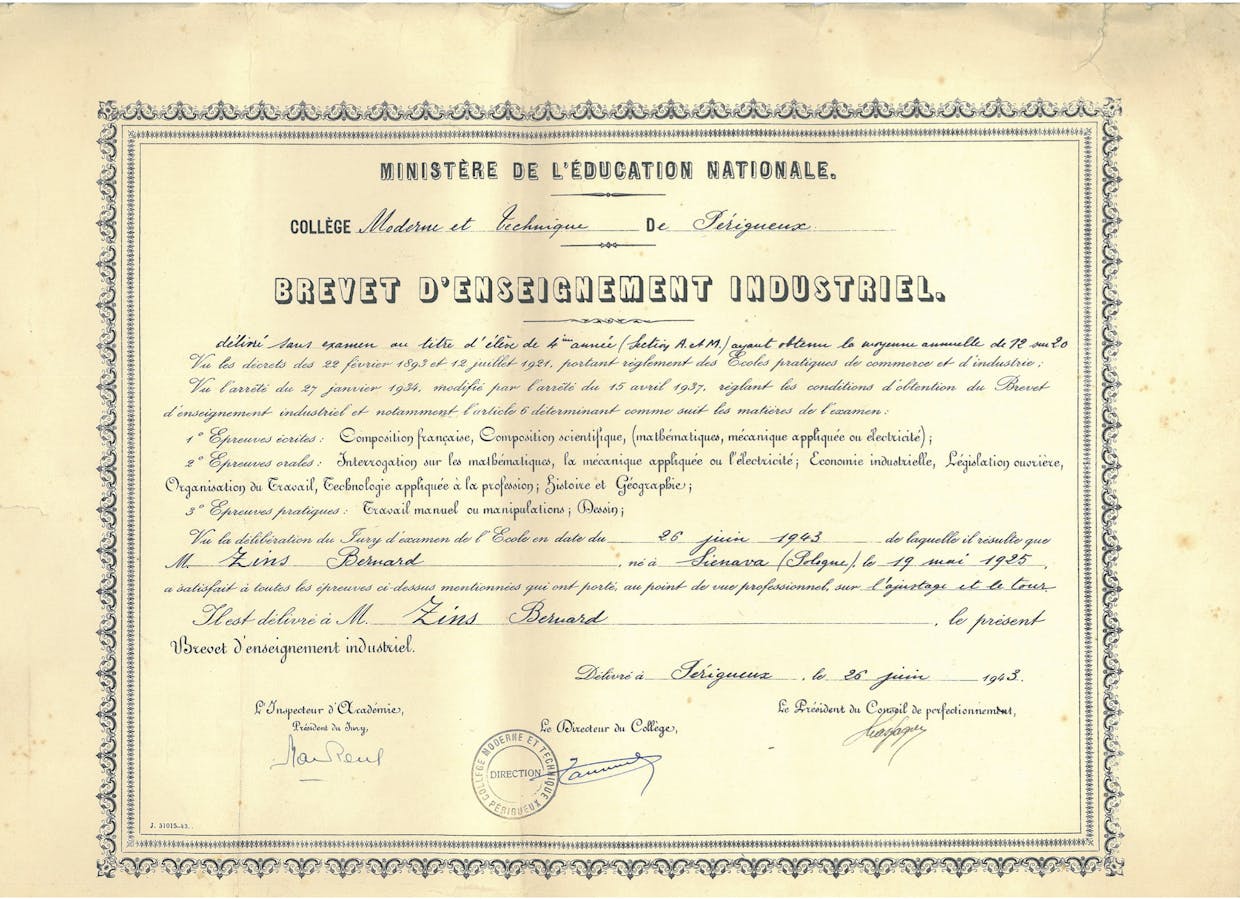 MINISTÈRE DE L'ÉDUCATION NATIONALE.
COLLÈGE Moderne et Technique De Périgueux
BREVET D'ENSEIGNEMENT INDUSTRIEL.
délivré sans examen au titre d'élève de 4ème année (Section A. et M.) ayant obtenu la moyenne annuelle de 12 sur 20
Vu les décrets des 22 février 1893 et 12 juillet 1921, portant règlement des Écoles pratiques de commerce et d'industrie;
Vu l'arrêté du 27 janvier 1934, modifié par l'arrêté du 15 avril 1937, réglant les conditions d'obtention du Brevet
d'enseignement industriel et notamment l'article 6 déterminant comme suit les matières de l'examen:
1° Epreuves écrites: Composition française, Composition scientifique, (mathématiques, mécanique appliquée ou électricité);
2° Epreuves orales: Interrogation sur les mathématiques, la mécanique appliquée ou l'électricité; Economie industrielle, Législation ouvrière,
Organisation du Travail, Technologie appliquée à la profession; Histoire et Géographie;
3° Epreuves pratiques: Travail manuel ou manipulations; Dessin;
Vu la délibération du Jury d'examen de l'Ecole en date du 26 juin 1943 de laquelle il résulte que
M. Zins Bernard, né à Sienava (Pologne), le 19 mai 1925
a satisfait à toutes les épreuves ci-dessus mentionnées qui ont porté, au point de vue professionnel, sur l'ajustage et le tour
Il est délivré à M. Zins Bernard, le présent
Brevet d'enseignement industriel.
Délivré à Périgueux, le 26 juin 1943.
L'Inspecteur d'Académie,
Président du Jury,
Le Directeur du Collège,
Le Président du Conseil de perfectionnement,
COLLÈGE MODERNE ET TECHNIQUE
DIRECTION
PÉRIGUEUX
J. 31015-43.